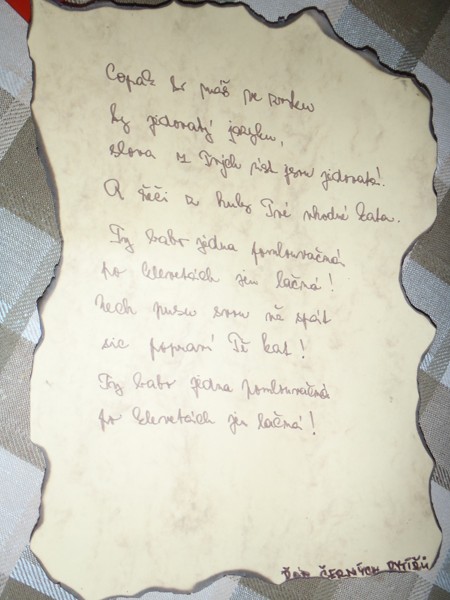 Copak to máš ve vorku
ty jedovatý jazyku,
slova z Tvých úst jsou jedovatá!
A řeči z huby Tvé vhodné kata.
Ty babo jedna pomlouvačná
po klevetách jen lačná!
Nech pusu svou už spát
sic popraví Tě kat!
Ty babo jedna pomlouvačná
po klevetách jen lačná!
ŘÁD ČERNÝCH RYTÍŘŮ